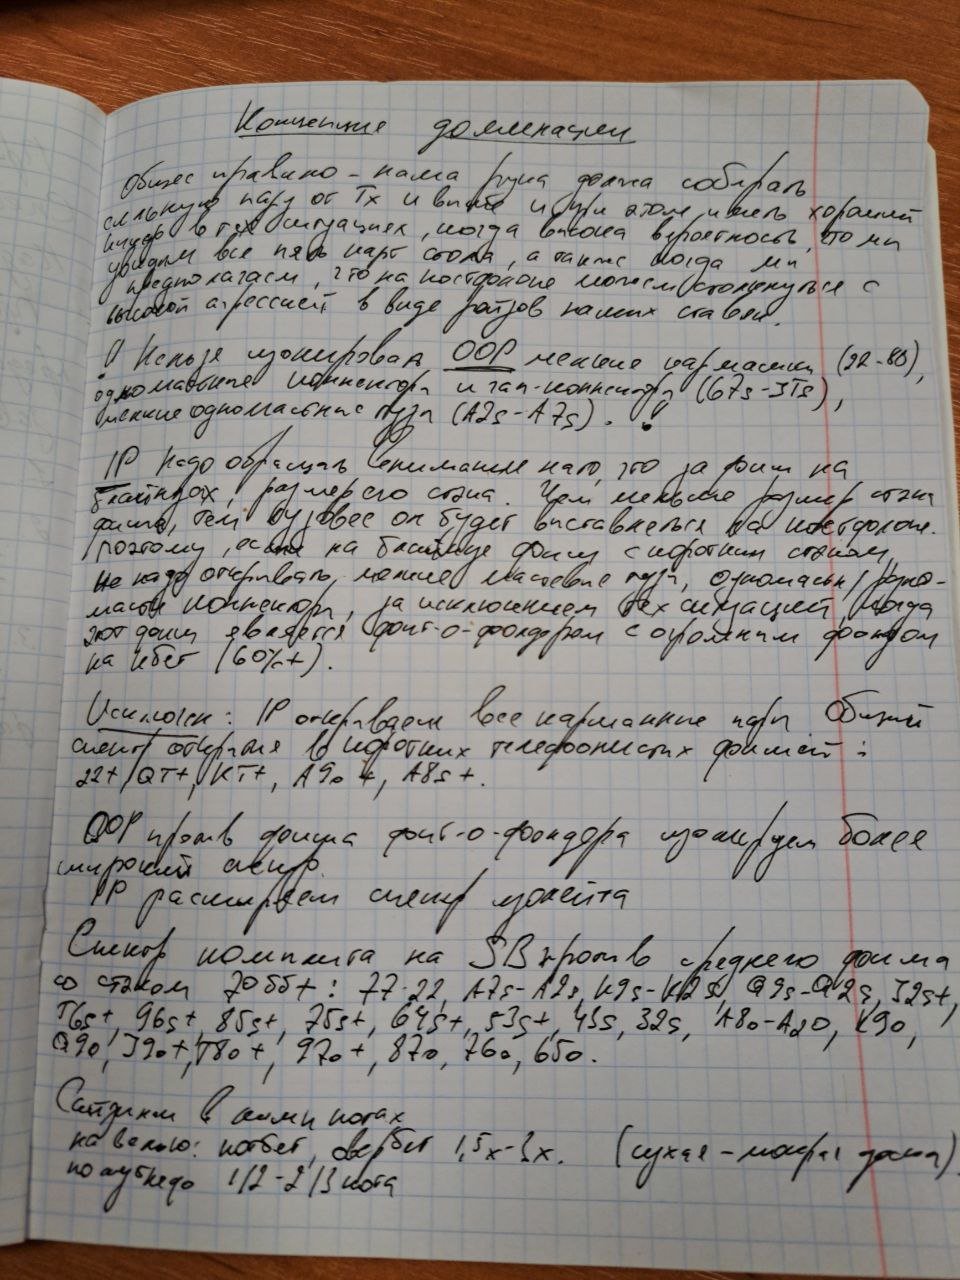 Концепция доминации
Общее правило - наша рука должна собирать
сильную пару от Tx и выше и при этом иметь хороший
кикер в тех ситуациях, когда высока вероятность, что мы
увидим все пять карт стола, а также когда мы
предполагаем, что на постфлопе можем столкнуться с
высокой агрессией в виде рейзов наших ставок.
! Нельзя изолировать OOP мелкие карманки (22-88),
одномастные коннекторы и гап-коннекторы (67s-JTs),
мелкие одномастные тузы (A2s-A7s). !
IP надо обращать внимание на то, что за фиш на
блайндах, размер его стека. Чем меньше размер стека
фиша, тем он будет выставляться на постфлопе.
Поэтому, если на блайнде фиш с коротким стеком,
не надо открывать мелкие мастевые тузы, одномастн/разно-
мастн коннекторы, за исключением тех ситуаций, когда
этот фиш является фит-о-фолдером с огромным фолдом
на кбет (60%+).
Исключен: IP открываем все карманные пары Общий
спектр открытия в коротких телефонистых фишей:
22+, QT+, KT+, A9o+, A8s+.
OOP против фиша фит-о-фолдера изолируем более
широкий спектр
IP расширяем спектр изолейта
Спектр комплита на SB против среднего фиша
со стеком 70бб+: 77-22, A7s-A2s, K9s-K2s, Q9s-Q2s, J2s+,
T6s+, 96s+, 85s+, 75s+, 64s+, 53s+, 43s, 32s, A8o-A2o, K9o,
Q9o, J9o+, T8o+, 97o+, 87o, 76o, 65o.
Сайзинги в лимп потах
на велью: потбет, овербет 1,5x-3x. (сухая - мокрая доска)
полублеф 1/2-2/3 пота